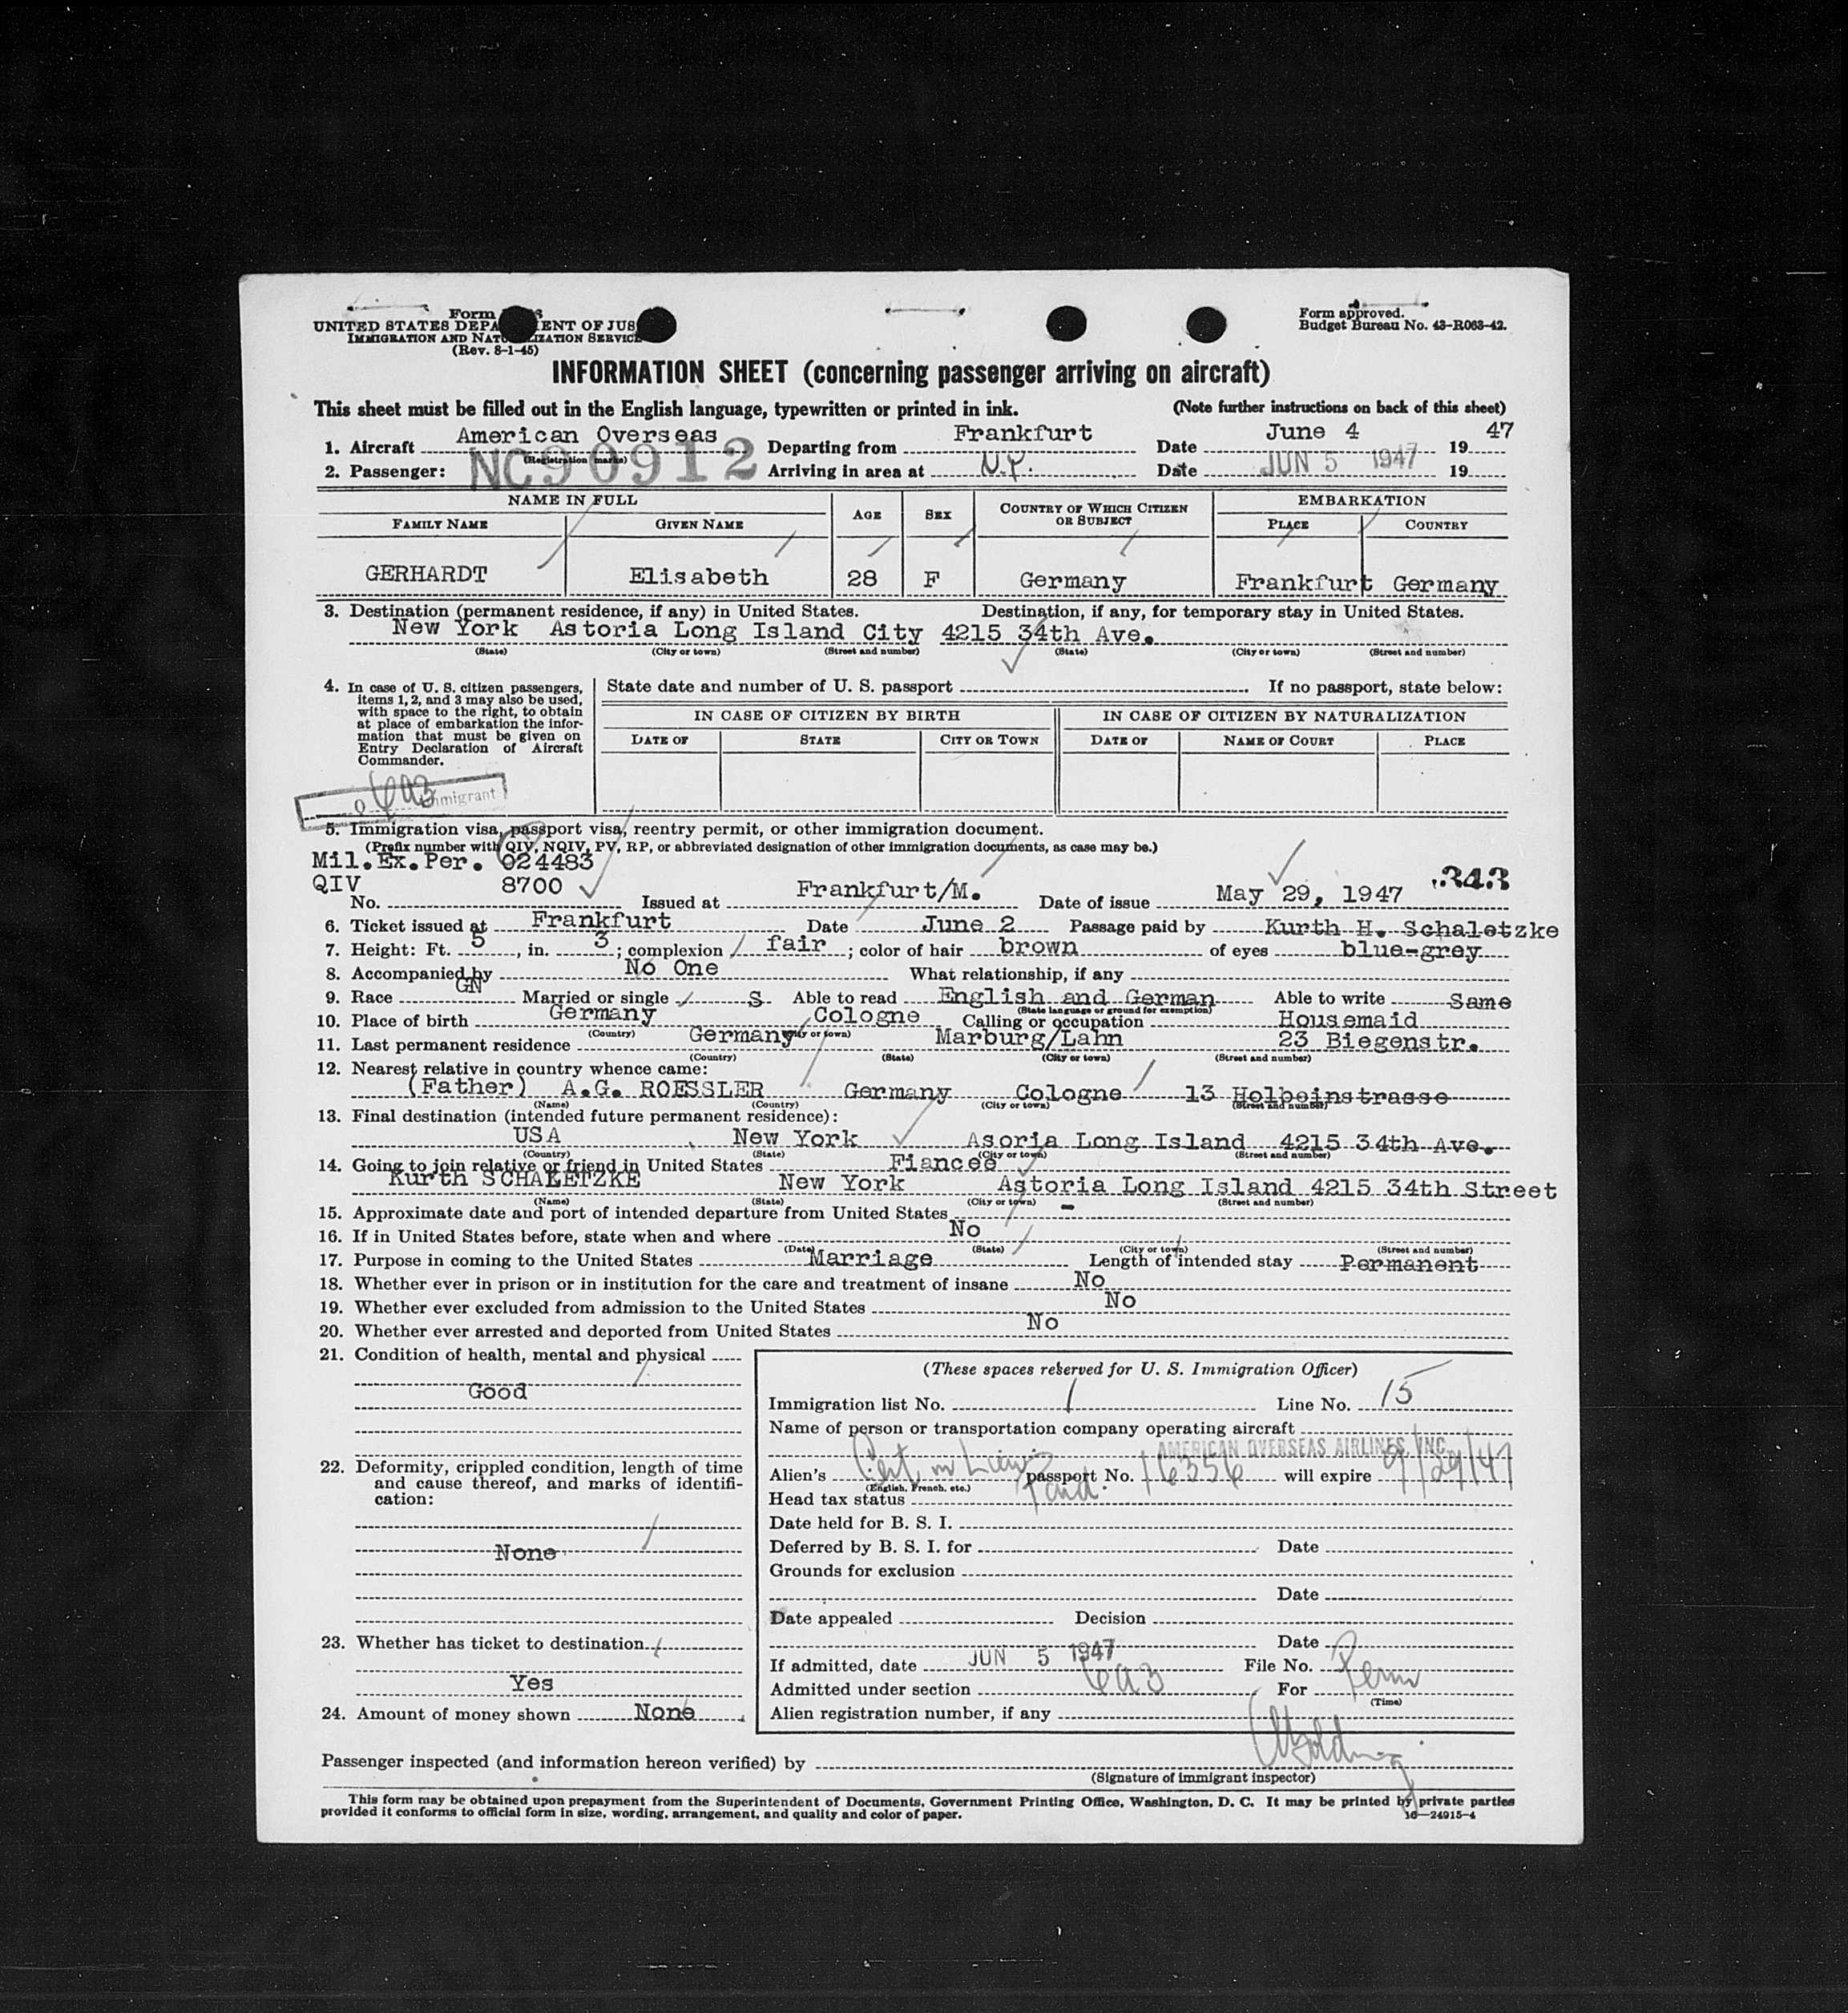 Form
UNITED STATES DEPA ENT OF JUS
IMMIGRATION AND NAT IZATION SERVICE
(Rev. 8-1-45)
Form approved.
Budget Bureau No. 43-R063-42.
INFORMATION SHEET (concerning passenger arriving on aircraft)
This sheet must be filled out in the English language, typewritten or printed in ink. (Note further instructions on back of this sheet)
1. Aircraft American Overseas Departing from Frankfurt Date June 4 1947
(Registration marks)
2. Passenger: NC90912 Arriving in area at N.Y. Date JUN 5 1947 19
NAME IN FULL AGE SEX COUNTRY OF WHICH CITIZEN OR SUBJECT EMBARKATION
FAMILY NAME GIVEN NAME PLACE COUNTRY
GERHARDT Elisabeth 28 F Germany Frankfurt Germany
3. Destination (permanent residence, if any) in United States. Destination, if any, for temporary stay in United States.
New York Astoria Long Island City 4215 34th Ave.
(State) (City or town) (Street and number) (State) (City or town) (Street and number)
4. In case of U. S. citizen passengers,
items 1, 2, and 3 may also be used,
with space to the right, to obtain
at place of embarkation the infor-
mation that must be given on
Entry Declaration of Aircraft
Commander.
State date and number of U. S. passport If no passport, state below:
IN CASE OF CITIZEN BY BIRTH IN CASE OF CITIZEN BY NATURALIZATION
DATE OF STATE CITY OR TOWN DATE OF NAME OF COURT PLACE
6a3 mmigrant
5. Immigration visa, passport visa, reentry permit, or other immigration document.
(Prefix number with QIV, NQIV, PV, RP, or abbreviated designation of other immigration documents, as case may be.)
Mil.Ex.Per. 024483
QIV 8700 .343
No. Issued at Frankfurt/M. Date of issue May 29, 1947
6. Ticket issued at Frankfurt Date June 2 Passage paid by Kurth H. Schaletzke
7. Height: Ft. 5, in. 3; complexion fair; color of hair brown of eyes blue-grey
8. Accompanied by No One What relationship, if any
9. Race GN Married or single S Able to read English and German Able to write Same
(State language or ground for exemption)
10. Place of birth Germany Cologne Calling or occupation Housemaid
(Country) (City or town)
11. Last permanent residence Germany Marburg/Lahn 23 Biegenstr.
(Country) (State) (City or town) (Street and number)
12. Nearest relative in country whence came:
(Father) A.G. ROESSLER Germany Cologne 13 Holbeinstrasse
(Name) (Country) (City or town) (Street and number)
13. Final destination (intended future permanent residence):
USA New York Asoria Long Island 4215 34th Ave.
(Country) (State) (City or town) (Street and number)
14. Going to join relative or friend in United States Fiancee
Kurth SCHALETZKE New York Astoria Long Island 4215 34th Street
(Name) (State) (City or town) (Street and number)
15. Approximate date and port of intended departure from United States -
16. If in United States before, state when and where No
(Date) (State) (City or town) (Street and number)
17. Purpose in coming to the United States Marriage Length of intended stay Permanent
18. Whether ever in prison or in institution for the care and treatment of insane No
19. Whether ever excluded from admission to the United States No
20. Whether ever arrested and deported from United States No
21. Condition of health, mental and physical
Good
22. Deformity, crippled condition, length of time
and cause thereof, and marks of identifi-
cation:
None
23. Whether has ticket to destination
Yes
24. Amount of money shown None
(These spaces reserved for U. S. Immigration Officer)
Immigration list No. 1 Line No. 15
Name of person or transportation company operating aircraft
AMERICAN OVERSEAS AIRLINES, INC.
Alien's Cert in Lieu passport No. 16356 will expire 9/29/47
(English, French, etc.)
Head tax status Paid.
Date held for B. S. I.
Deferred by B. S. I. for Date
Grounds for exclusion
Date
Date appealed Decision
Date
If admitted, date JUN 5 1947 File No.
Admitted under section 6a3 For Perm
(Time)
Alien registration number, if any
Passenger inspected (and information hereon verified) by
(Signature of immigrant inspector)
This form may be obtained upon prepayment from the Superintendent of Documents, Government Printing Office, Washington, D. C. It may be printed by private parties
provided it conforms to official form in size, wording, arrangement, and quality and color of paper. 16—24915-4